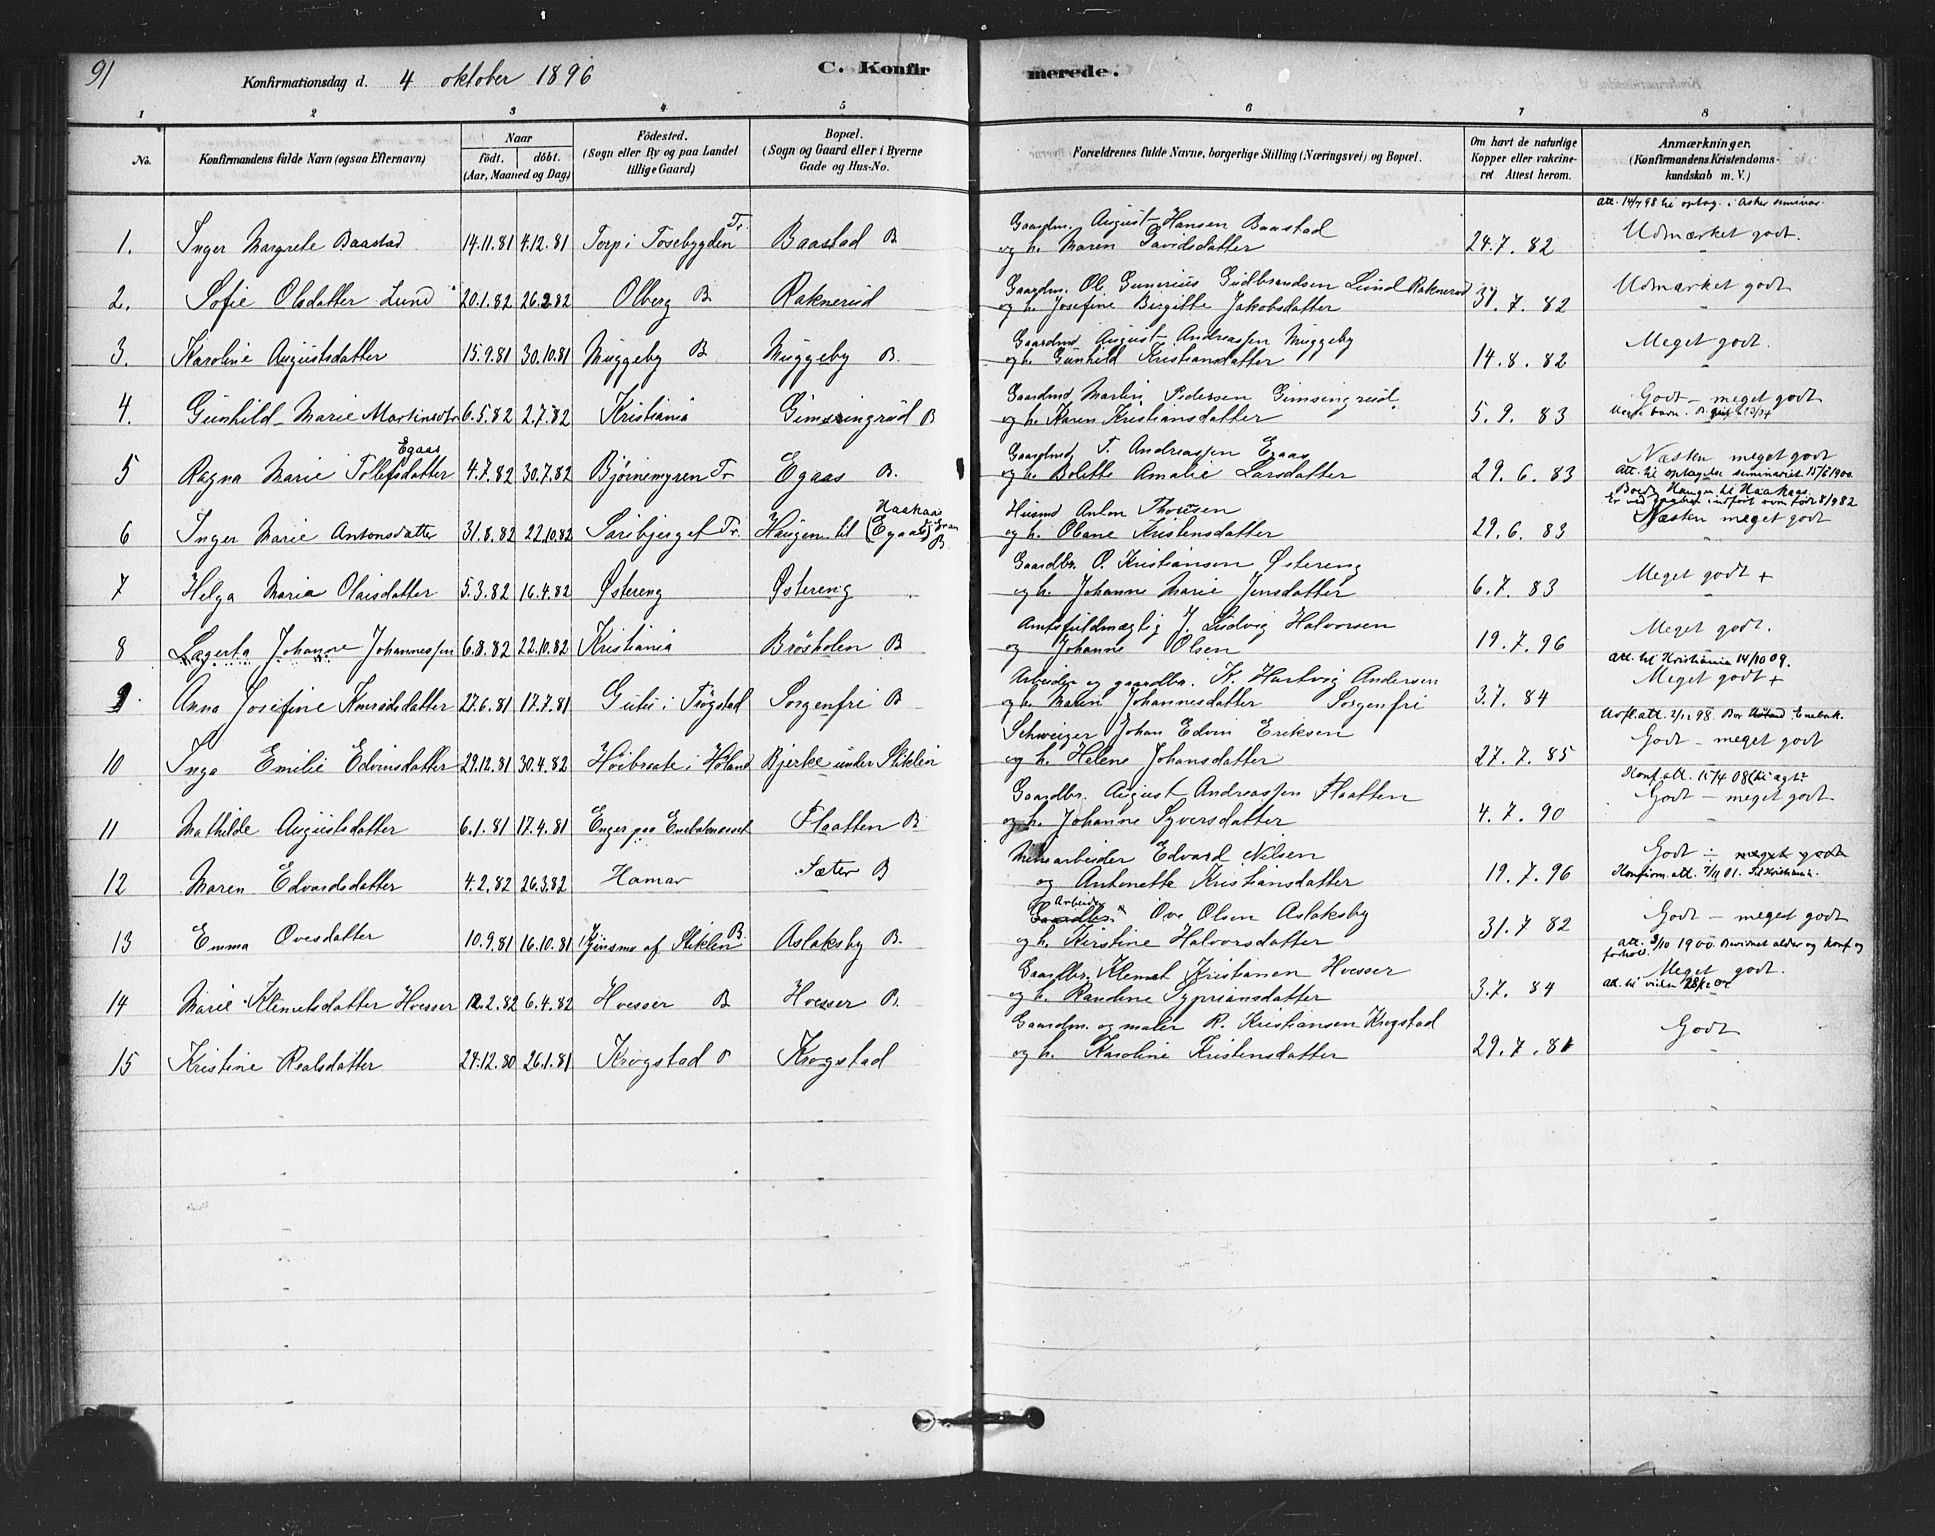 91
Konfirmationsdag d. 4 oktober 1896
C. Konfirmerede.
1 2 3 4 5 6 7 8
No. Konfirmandens fulde Navn (ogsaa Efternavn) Naar født. døbt. (Aar, Maaned og Dag) Fødested. (Sogn eller By og paa Landet tillige Gaard) Bopæl. (Sogn og Gaard eller i Byerne Gade og Hus-No. Forældrenes fulde Navne, borgerlige Stilling (Næringsvei) og Bopæl. Om havt de naturlige Kopper eller vakcineret Attest herom. Anmærkninger. (Konfirmandens Kristendomskundskab m. V.)
Att. 14/7 98 til optag. i Asker seminar.
1. Inger Margrete Baastad 14.11.81 4.12.81 Torp i Tosebygden Tr. Baastad B Gaardm. August Hansen Baastad
og h. Maren Davidsdatter 24.7. 82 Udmærket godt.
2. Sofie Olsdatter Lund 20.1.82 26.2.82 Olberg B Raknerud Gaardm. Ole Gunerius Gudbrandsen Lund Raknerud
og h. Josefine Birgitte Jakobsdatter 31.7. 82 Udmærket godt
3. Karoline Augustsdatter 15.9.81 30.10.81 Muggeby B Muggeby B. Gaardmd August Andreassen Muggeby
og h. Gunhild Kristiansdatter 14.8. 82 Meget godt.
4. Gunhild Marie Martinsdtr 6.5.82 2.7.82 Kristiania Gimsingrud B Gaardmd Martin Pedersen Gimsingrud.
og h. Karen Kristiansdatter 5.9. 83 Godt – meget godt
5 Ragna Marie Tollefsdatter Egaas 4.7.82 30.7.82 Bjørnemyren Tr Egaas B. Gaardmd T. Andreassen Egaas
og h. Bolette Amalie Larsdatter 29.6. 83 Næsten meget godt
Att. til optagelse seminariet 15/6 1900.
6 Inger Marie Antonsdatter 31.8.82 22.10.82 Saribjerget Tr. Haugen til Haakaas (Egaas) B Husmd Anton Thoresen
og h. Olane Kristensdatter 29.6. 83 Næsten meget godt
7 Helga Maria Olaisdatter 5.3.82 16.4.82 Østereng Østereng Gaardbr. O. Kristiansen Østereng
og h. Johanne Marie Jensdatter 6.7. 83 Meget godt +
8 Lagerta Johanne Johannessen 6.8.82 22.10.82 Kristiania Brøsholen B Amtsfuldmægtig J. Ludvig Halvorsen
og Johanne Olsen 19.7. 96 Meget godt.
Att. til Kristiania 14/10 09.
9 Anna Josefine Konradsdatter 27.6.81 17.7.81 Gutu i Trøgstad Sorgenfri B Arbeider og gaardbr. K. Hartvig Andersen
og h. Maren Johannesdatter Sorgenfri 3.7. 84 Meget godt +
10 Inga Emilie Edvinsdatter 29.12.81 30.4.82 Høibraate i Høland Bjerke under Stiklen Schweizer Johan Edvin Eriksen
og h. Helene Johansdatter 27.7. 85 Godt – meget godt
11 Mathilde Augustsdatter 6.1.81 17.4.81 Enger paa Enebaknesset Flaatten B Gaardbr. August Andreassen Flaatten
og h. Johanne Syversdatter 4.7. 90 Godt – meget godt
12 Maren Edvardsdatter 4.2.82 26.3.82 Hamar Sæter B Minearbeider Edvard Nilsen
og Antonette Kristiansdatter 19.7. 96 Godt – meget godt
Konfirm. att. 7/11 01. Til Kristiania.
13 Emma Ovesdatter 10.9.81 16.10.81 Kjinsmo af Stiklen B. Aslaksby B. Gaardbr. Arbeider Ove Olsen Aslaksby
og h. Kirstine Halvorsdatter 31.7 82 Godt – meget godt
14 Marie Klemetsdatter Hvesser 12.2.82 6.4.82 Hvesser B Hvesser B. Gaardbr. Klemet Kristiansen Hvesser
og h. Randine Sypriansdatter 3.7. 84 Meget godt.
15 Kristine Realsdatter 24.12.80 26.1.81 Krogstad Krogstad Gaardm. og maler R. Kristiansen Krogstad
og h. Karoline Kristensdatter 29.7.81 Godt